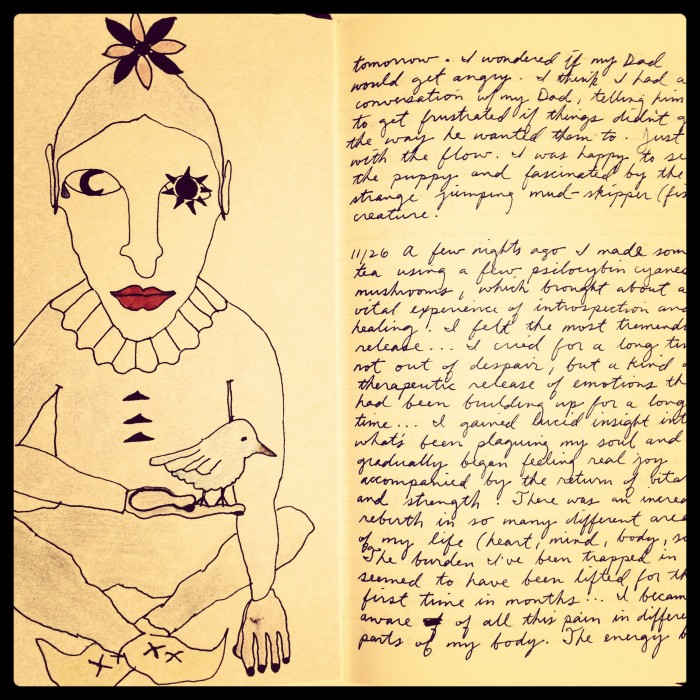 tomorrow. I wondered if my Dad
would get angry. I think I had a
conversation w/ my Dad, telling him
to get frustrated if things didn't g
the way he wanted them to. Just
with the flow. I was happy to se
the puppy and fascinated by the
strange jumping mud-skipper (fis
creature.
11/26 A few nights ago I made som
tea using a few psilocybin cyanes
mushrooms, which brought about a
vital experience of introspection and
healing. I felt the most tremendo
release... I cried for a long tim
not out of despair, but a kind o
therapeutic release of emotions tha
had been building up for a long
time... I gained lucid insight int
what's been plaguing my soul and
gradually began feeling real joy
accompanied by the return of vita
and strength. There was an increa
rebirth in so many different area
of my life (heart, mind, body, so
The burden I've been trapped in
seemed to have been lifted for th
first time in months... I becam
aware of all this pain in differe
parts of my body. The energy b